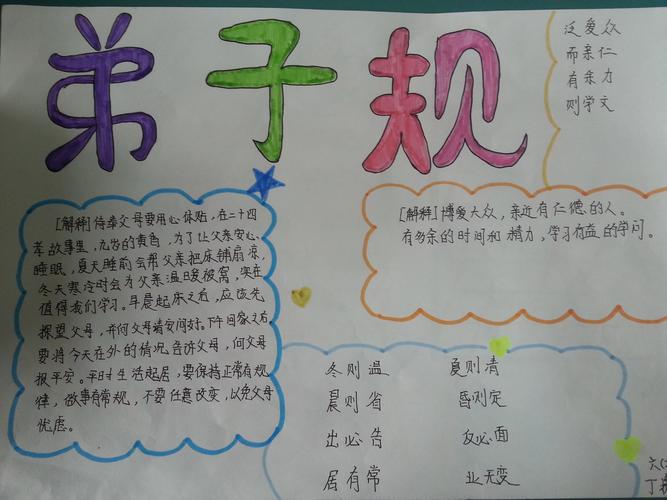 弟子规
泛爱众
而亲仁
有余力
则学文
[解释]侍奉父母要用心体贴,在二十四
孝故事里,九岁的黄香,为了让父亲安心
睡眠,夏天睡前会帮父亲把床铺扇凉,
冬天寒冷时会为父亲温暖被窝,实在
值得我们学习。早晨起床之后,应该先
探望父母,并向父母请安问好。下午回家之后
要将今天在外的情况告诉父母,向父母
报平安。平时生活起居,要保持正常有规
律,做事有常规,不要任意改变,以免父母
忧虑。
[解释]博爱大众,亲近有仁德的人。
有多余的时间和精力,学习有益的学问。
冬则温 夏则清
晨则省 昏则定
出必告 反必面
居有常 业无变
六
丁